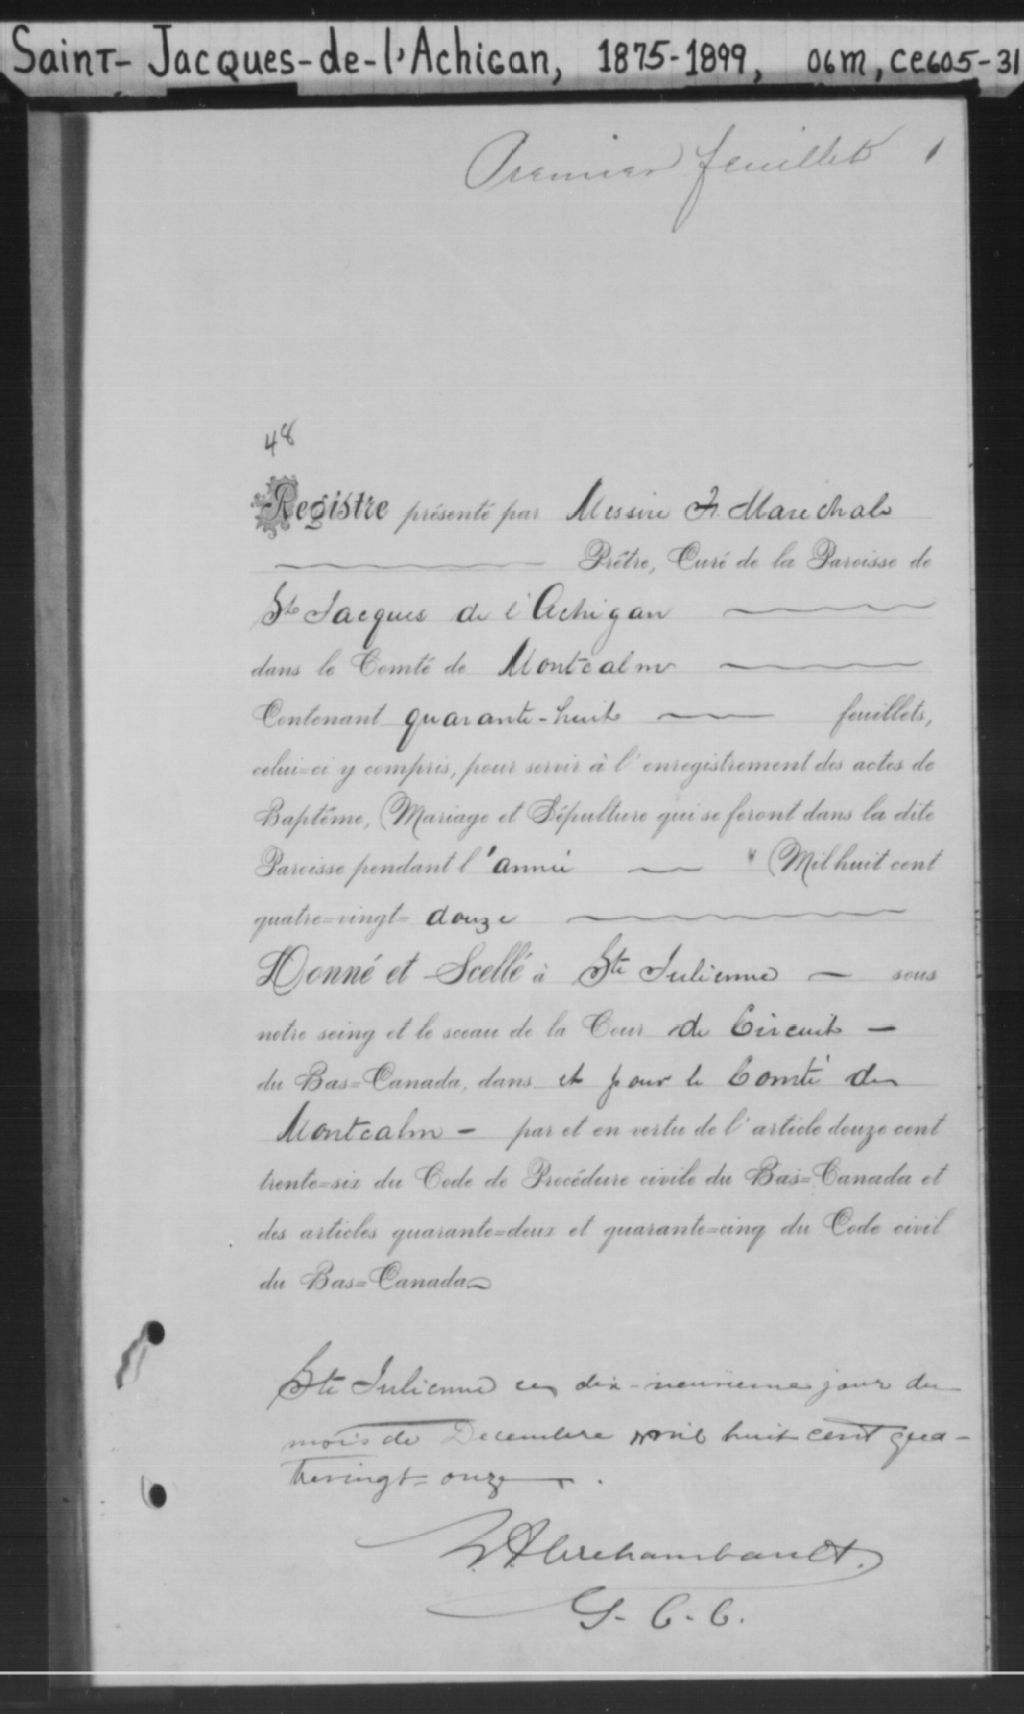 Saint-Jacques-de-l'Achigan, 1875-1899, 06m, ce605-31
Premier feuillet 1
48
Registre présenté par Messire F. Marechal
Prêtre, Curé de la Paroisse de
St Jacques de l'Achigan
dans le Comté de Montcalm
Contenant quarante-huit feuillets,
celui=ci y compris, pour servir à l'enregistrement des actes de
Baptême, Mariage et Sépulture qui se feront dans la dite
Paroisse pendant l'année Mil huit cent
quatre=vingt=douze
Donné et Scellé à Ste Julienne — sous
notre seing et le sceau de la Cour de Circuit —
du Bas=Canada, dans et pour le Comté de
Montcalm — par et en vertu de l'article douze cent
trente=six du Code de Procédure civile du Bas=Canada et
des articles quarante=deux et quarante=cinq du Code civil
du Bas=Canada
Ste Julienne ce dix-neuvieme jour du
mois de Decembre mil huit cent qua-
trevingt=onze.
Archambault.
G. C. C.